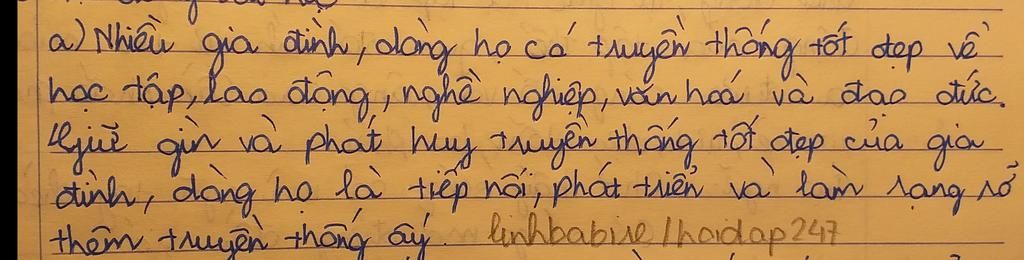 a) Nhiều gia đình, dòng họ có truyền thống tốt đẹp về
học tập, lao động, nghề nghiệp, văn hoá và đạo đức.
Giữ gìn và phát huy truyền thống tốt đẹp của gia
đình, dòng họ là tiếp nối, phát triển và làm rạng rỡ
thêm truyền thống ấy. linhbabise/hoidap247